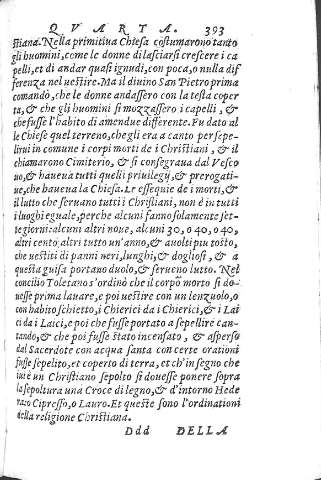 QVARTA. 393
stiana. Nella primitiua Chiesa costumarono tanto
gli huomini, come le donne di lasciarsi crescere i ca
pelli, et di andar quasi ignudi, con poca, o nulla dif
ferenza nel uestire. Ma il diuino San Pietro prima
comandò, che le donne andassero con la testa coper
ta, & che gli huomini si mozzassero i capelli, &
che fusse l'habito di amendue differente. Fu dato al
le Chiese quel terreno, che gli era a canto per sepe-
lirui in comune i corpi morti de i Christiani, & il
chiamarono Cimiterio, & si consegraua dal Vesco
uo, & haueua tutti quelli priuilegij, & prerogati-
ue, che haueua la Chiesa. Le essequie de i morti, &
il lutto che seruano tutti i Christiani, non è in tutti
i luoghi eguale, perche alcuni fanno solamente set-
te giorni: alcuni altri noue, alcuni 30, o 40, o 40,
altri cento, altri tutto un'anno, & a uolti piu tosto,
che uestiti di panni neri, lunghi, & dogliosi, & a
questa guisa portano duolo, & seruono lutto. Nel
concilio Toletano s'ordinò che il corpo morto si do-
uesse prima lauare, e poi uestire con un lenzuolo, o
con habito schietto, i Chierici da i Chierici, & i Lai
ci da i Laici, e poi che fusse portato a sepellire can-
tando, & che poi fusse stato incensato, & asperso
dal Sacerdote con acqua santa con certe orationi
fusse sepelito, et coperto di terra, et ch'in segno che
iui è un Christiano sepolto si douesse ponere sopra
la sepoltura una Croce di legno, & d'intorno Hede
ra, o Cipresso, o Lauro. Et queste sono l'ordinationi
della religione Christiana.
Ddd DELLA